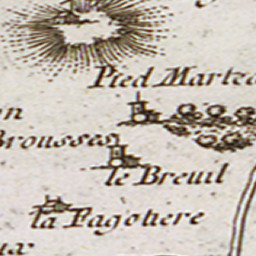 Pied Marteau
Brousses
le Breuil
la Fagotiere